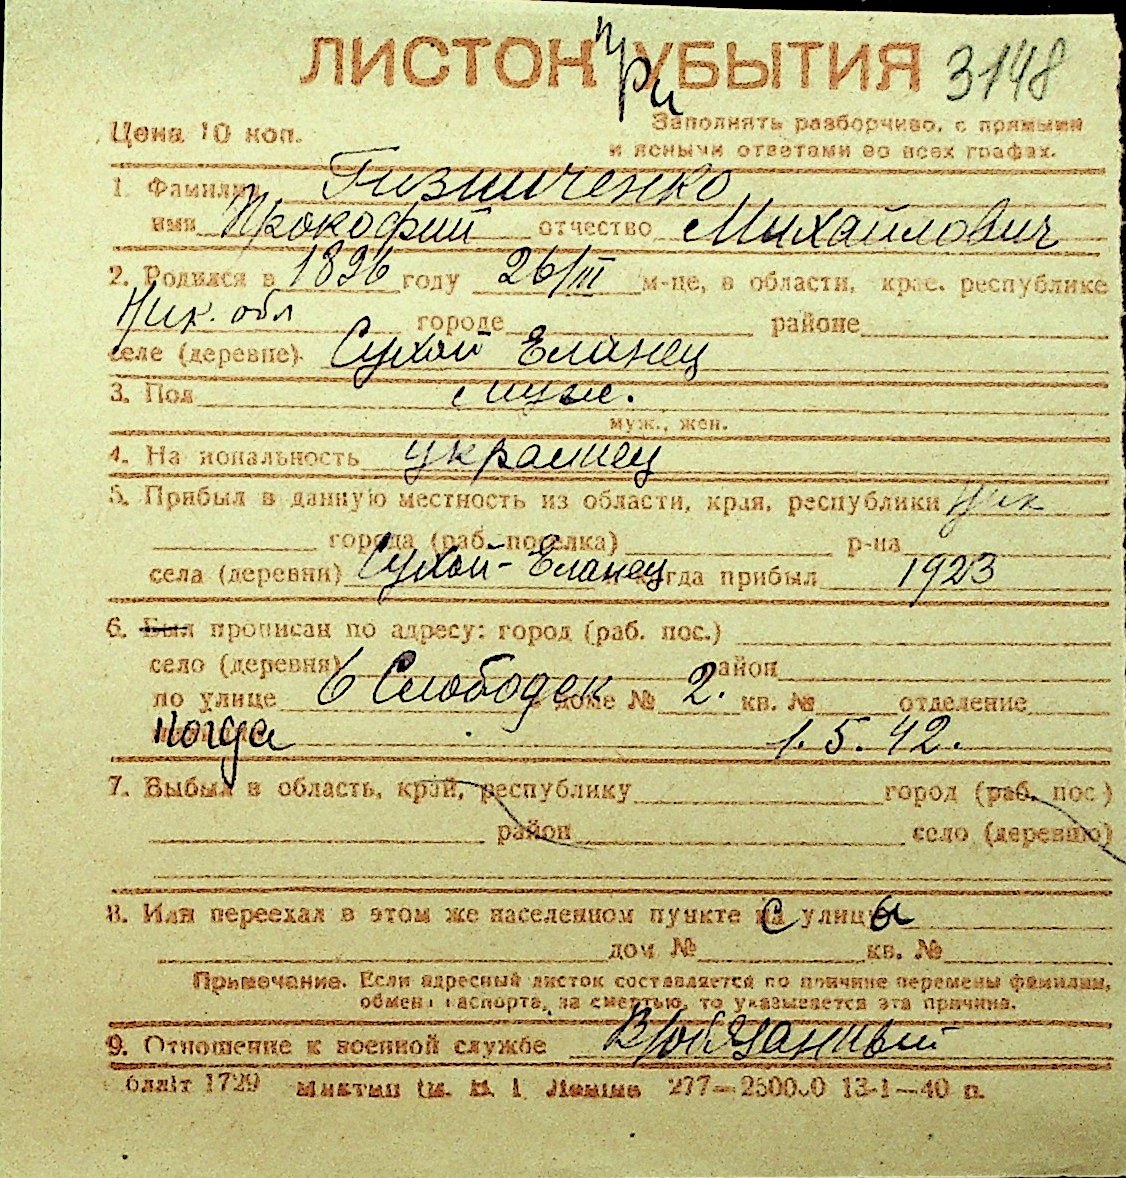 ЛИСТОК при УБЫТИЯ 3148
Цена 10 коп.
Заполнять разборчиво, с прямыми
и ясными ответами во всех графах.
1. Фамилия Гизниченко
имя Прокофий отчество Михайлович
2. Родился в 1896 году 26/III м-це, в области, крае, республике
Ник. обл городе районе
селе (деревне) Сухой Еланец
3. Пол муж.
муж., жен.
4. Национальность украинец
5. Прибыл в данную местность из области, края, республики Ник
города (раб. поселка) р-на
села (деревни) Сухой-Еланец и когда прибыл 1923
6. Был прописан по адресу: город (раб. пос.)
село (деревня) район
по улице 6 Слободск в доме № 2. кв. № отделение
когда 1.5.42.
7. Выбыл в область, край, республику город (раб. пос)
район село (деревню)
8. Или переехал в этом же населенном пункте с улицы
дом № кв. №
Примечание. Если адресный листок составляется по причине перемены фамилии,
обмена паспорта, за смертью, то указывается эта причина.
9. Отношение к военной службе В/обязанный
1729 им. В. И. Ленина 277—250000 13-1—40 п.